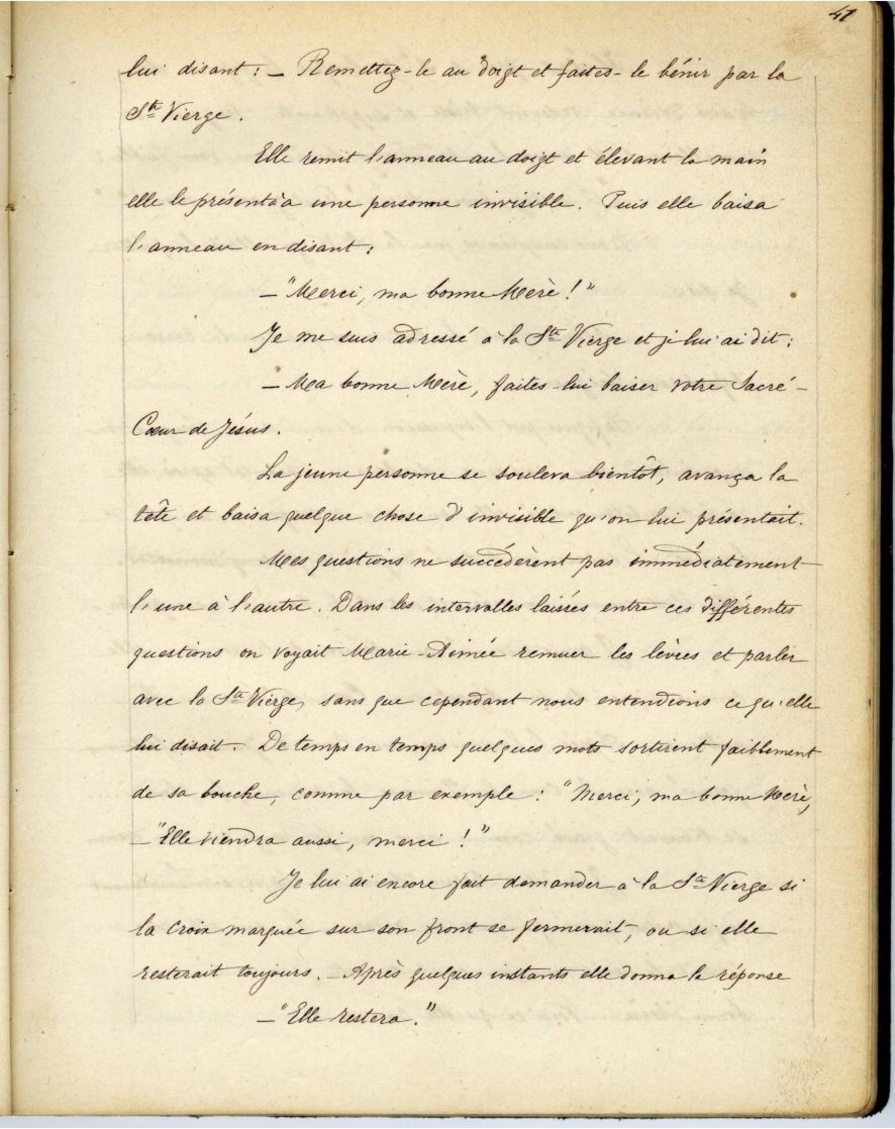 41
lui disant : – Remettez-le au doigt et faites-le bénir par la
Ste Vierge.
Elle remit l'anneau au doigt et élevant la main
elle le présenta à une personne invisible. Puis elle baisa
l'anneau en disant :
– "Merci, ma bonne Mère !"
Je me suis adressé à la Ste Vierge et je lui ai dit :
– Ma bonne Mère, faites-lui baiser votre Sacré-
Cœur de Jésus.
La jeune personne se souleva bientôt, avança la
tête et baisa quelque chose d'invisible qu'on lui présentait.
Mes questions ne succédèrent pas immédiatement
l'une à l'autre. Dans les intervalles laissés entre ces différentes
questions on voyait Marie-Aimée remuer les lèvres et parler
avec la Ste Vierge, sans que cependant nous entendions ce qu'elle
lui disait. De temps en temps quelques mots sortirent faiblement
de sa bouche, comme par exemple : "Merci, ma bonne Mère,
– "Elle viendra aussi, merci !"
Je lui ai encore fait demander à la Ste Vierge si
la croix marquée sur son front se fermerait, ou si elle
resterait toujours. – Après quelques instants elle donna la réponse
– "Elle restera."